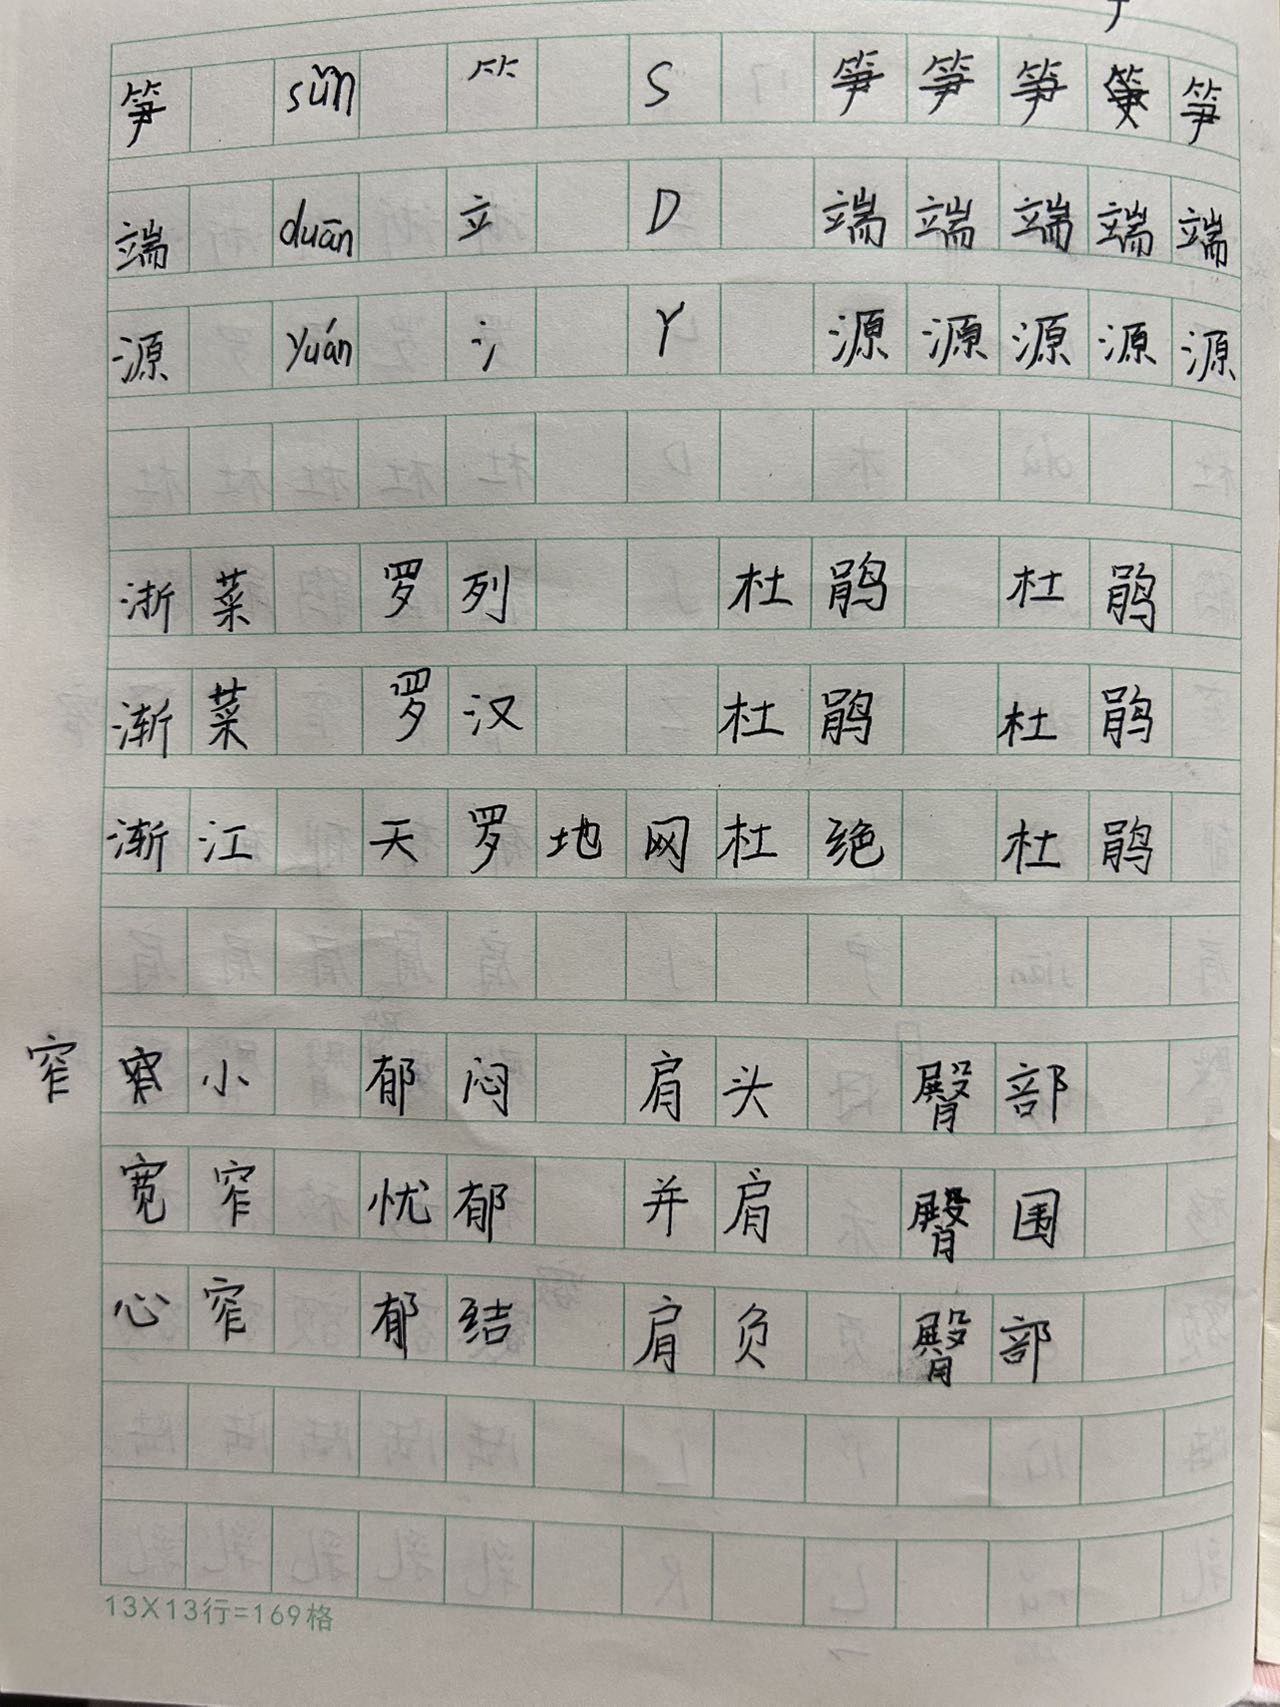 笋 sǔn ⺮ S 笋 笋 笋 笋
端 duān 立 D 端 端 端 端 端
源 yuán 氵 Y 源 源 源 源 源
浙菜 罗列 杜鹃 杜鹃
渐菜 罗汉 杜鹃 杜鹃
渐江 天罗地网 杜绝 杜鹃
窄 小 郁闷 肩头 臀部
宽窄 忧郁 并肩 臀围
心窄 郁结 肩负 臀部
13X13行=169格